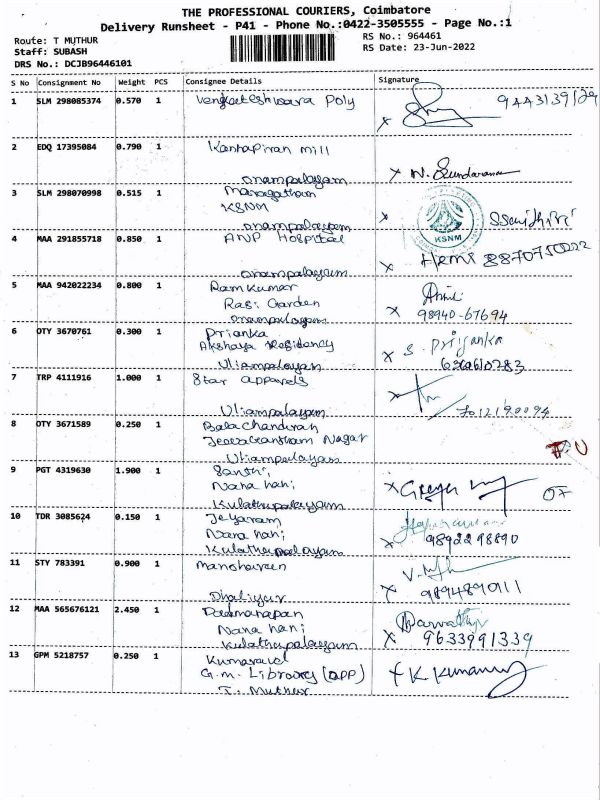 THE PROFESSIONAL COURIERS, Coimbatore
Delivery Runsheet - P41 - Phone No.:0422-3505555 - Page No.:1
Route: T MUTHUR
Staff: SUBASH
DRS No.: DCJB96446101
RS No.: 964461
RS Date: 23-Jun-2022
S No Consignment No Weight PCS Consignee Details Signature
1 SLM 298085374 0.570 1 Vengateshwara Poly 9443139129
2 EDQ 17395084 0.790 1 Kanhapiran mill
onampalayam
x N. Sundaraman
3 SLM 298070998 0.515 1 Maragatham
KSNM
onampalayam
KSNM
4 MAA 291855718 0.850 1 ANP Hospital
onampalayam
x Hema 8870750022
5 MAA 942022234 0.800 1 Ramkumar
Rasi Garden
onampalayam
x 98940-67694
6 OTY 3670761 0.300 1 Prianka
Akshaya Residency
Uliampalayam
x S. Priyanka
7 TRP 4111916 1.000 1 Star apparels
Uliampalayam
x 7012190094
8 OTY 3671589 0.250 1 Balachandran
Nagar
Uliampalayam
9 PGT 4319630 1.900 1 Santhi
Nana nani
Kulathupalayam
x
10 TDR 3085624 0.150 1 Jeyaram
Nana nani
Kulathupalayam
x 9892298890
11 STY 783391 0.900 1
Dhaliyur
x 9894890111
12 MAA 565676121 2.450 1 Padmanapan
Nana nani
Kulathupalayam
x 9633991339
13 GPM 5218757 0.250 1 Kumaravel
G.M. Library (opp)
T. Muthur